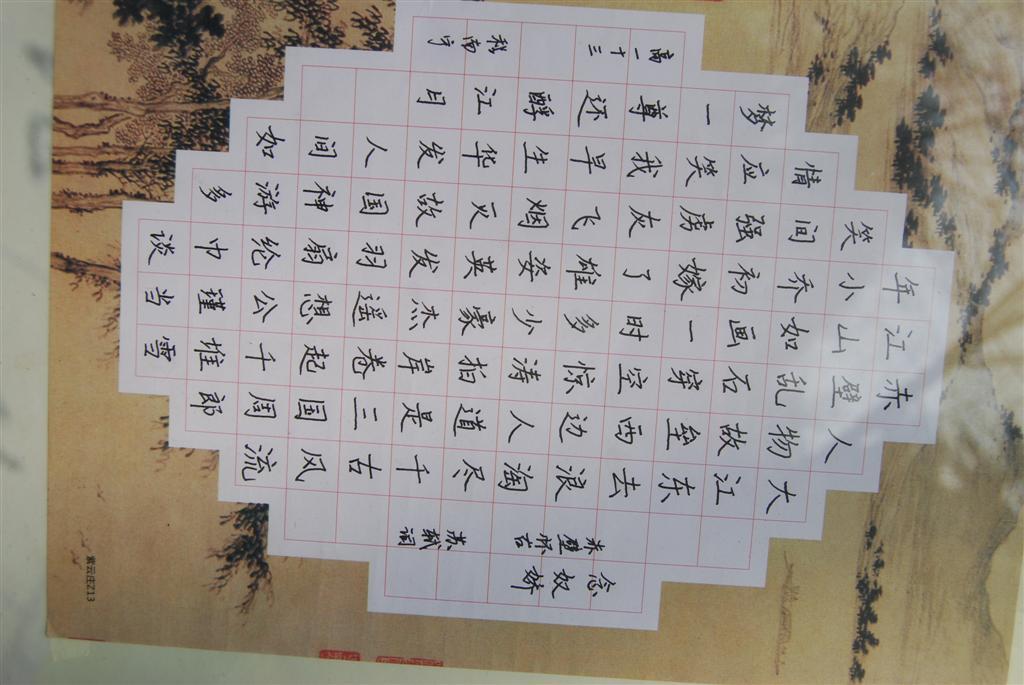 念奴娇
赤壁怀古 苏轼词
大江东去浪淘尽千古风流
人物故垒西边人道是三国周郎
赤壁乱石穿空惊涛拍岸卷起千堆雪
江山如画一时多少豪杰遥想公瑾当
年小乔初嫁了雄姿英发羽扇纶巾谈
笑间强虏灰飞烟灭故国神游多
情应笑我早生华发人间如
梦一尊还酹江月
高一十三 南宁
紫云庄Z13